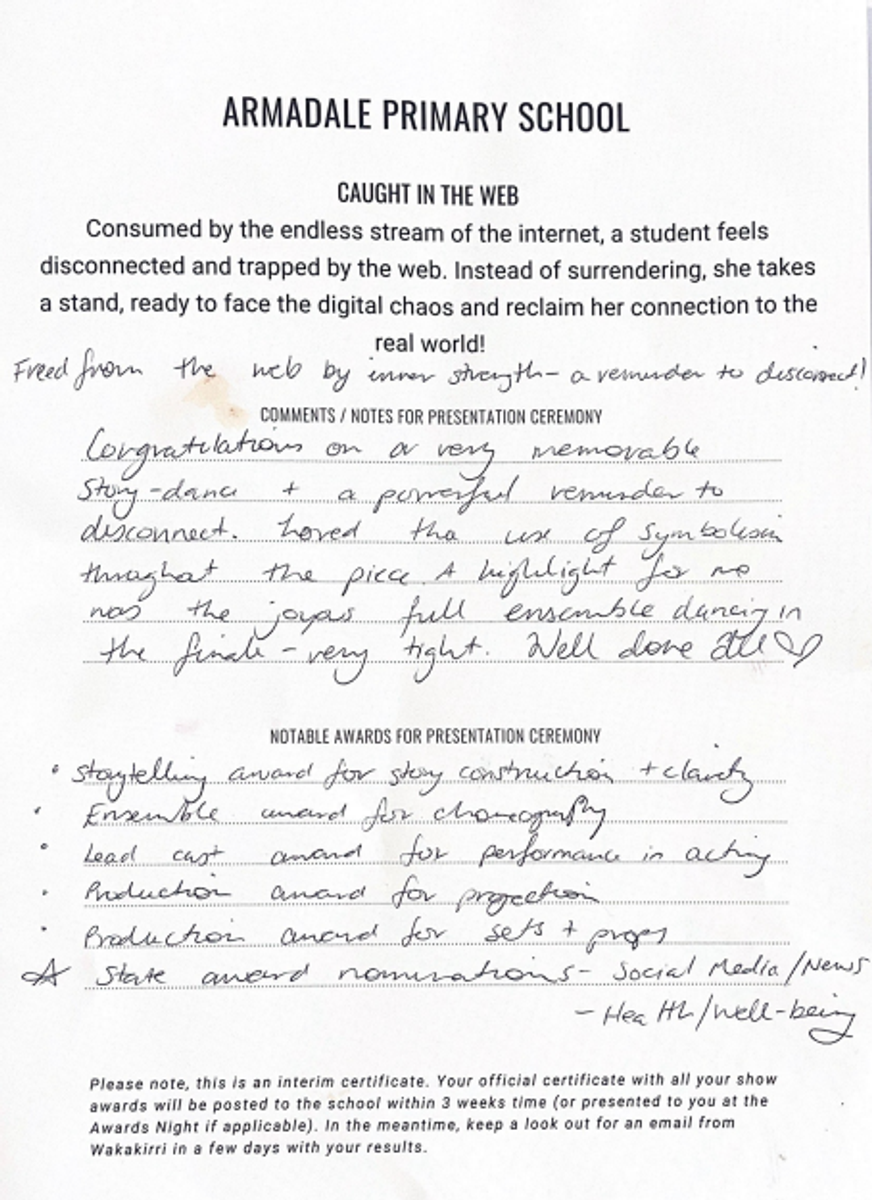 ARMADALE PRIMARY SCHOOL
CAUGHT IN THE WEB
Consumed by the endless stream of the internet, a student feels
disconnected and trapped by the web. Instead of surrendering, she takes
a stand, ready to face the digital chaos and reclaim her connection to the
real world!
Freed from the web by inner strength - a reminder to disconnect!
COMMENTS / NOTES FOR PRESENTATION CEREMONY
Congratulations on a very memorable
story-dance + a powerful reminder to
disconnect. Loved the use of symbolism
throughout the piece. A highlight for me
was the joyous full ensemble dancing in
the finale - very tight. Well done all ♡
NOTABLE AWARDS FOR PRESENTATION CEREMONY
• Storytelling award for story construction + clarity
• Ensemble award for choreography
• Lead cast award for performance in acting
• Production award for projection
• Production award for sets + props
☆ State award nominations - Social Media/News
- Health/Well-being
Please note, this is an interim certificate. Your official certificate with all your show
awards will be posted to the school within 3 weeks time (or presented to you at the
Awards Night if applicable). In the meantime, keep a look out for an email from
Wakakirri in a few days with your results.